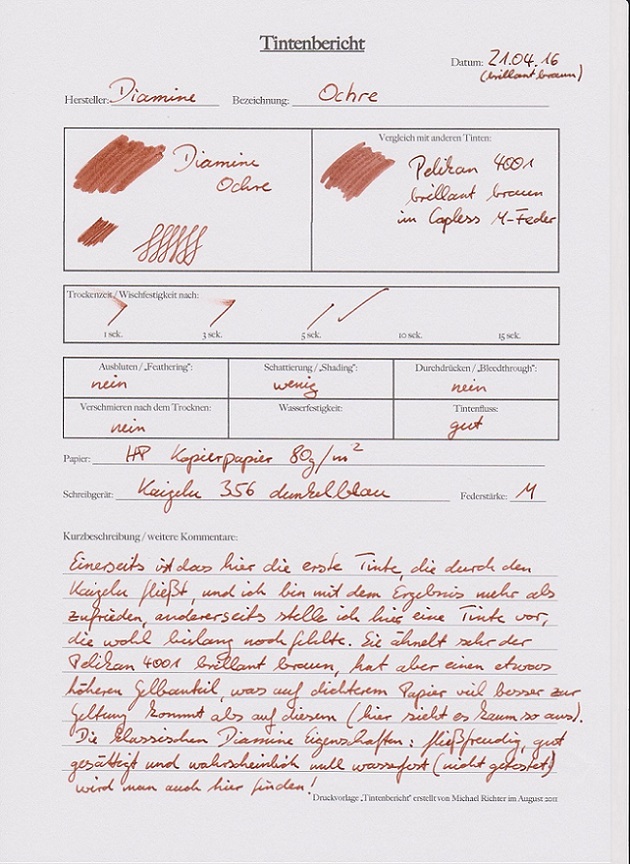 Tintenbericht
Datum: 21.04.16
(brillant braun)
Hersteller: Diamine Bezeichnung: Ochre
Vergleich mit anderen Tinten:
Diamine
Ochre
Pelikan 4001
brillant braun
im Capless M-Feder
Trockenzeit / Wischfestigkeit nach:
1 sek. 3 sek. 5 sek. 10 sek. 15 sek.
Ausbluten / „Feathering": Schattierung / „Shading": Durchdrücken / „Bleedthrough":
nein wenig nein
Verschmieren nach dem Trocknen: Wasserfestigkeit: Tintenfluss:
nein gut
Papier: HP Kopierpapier 80g/m²
Schreibgerät: Kaigelu 356 dunkelblau Federstärke: M
Kurzbeschreibung / weitere Kommentare:
Einerseits ist das hier die erste Tinte, die durch den
Kaigelu fließt, und ich bin mit dem Ergebnis mehr als
zufrieden, andererseits stelle ich hier eine Tinte vor,
die wohl bislang noch fehlte. Sie ähnelt sehr der
Pelikan 4001 brillant braun, hat aber einen etwas
höheren Gelbanteil, was auf dichterem Papier viel besser zur
Geltung kommt als auf diesem (hier sieht es kaum so aus).
Die klassischen Diamine Eigenschaften: fließfreudig, gut
gesättigt und wahrscheinlich null wasserfest (nicht getestet)
wird man auch hier finden!
Druckvorlage „Tintenbericht" erstellt von Michael Richter im August 2011